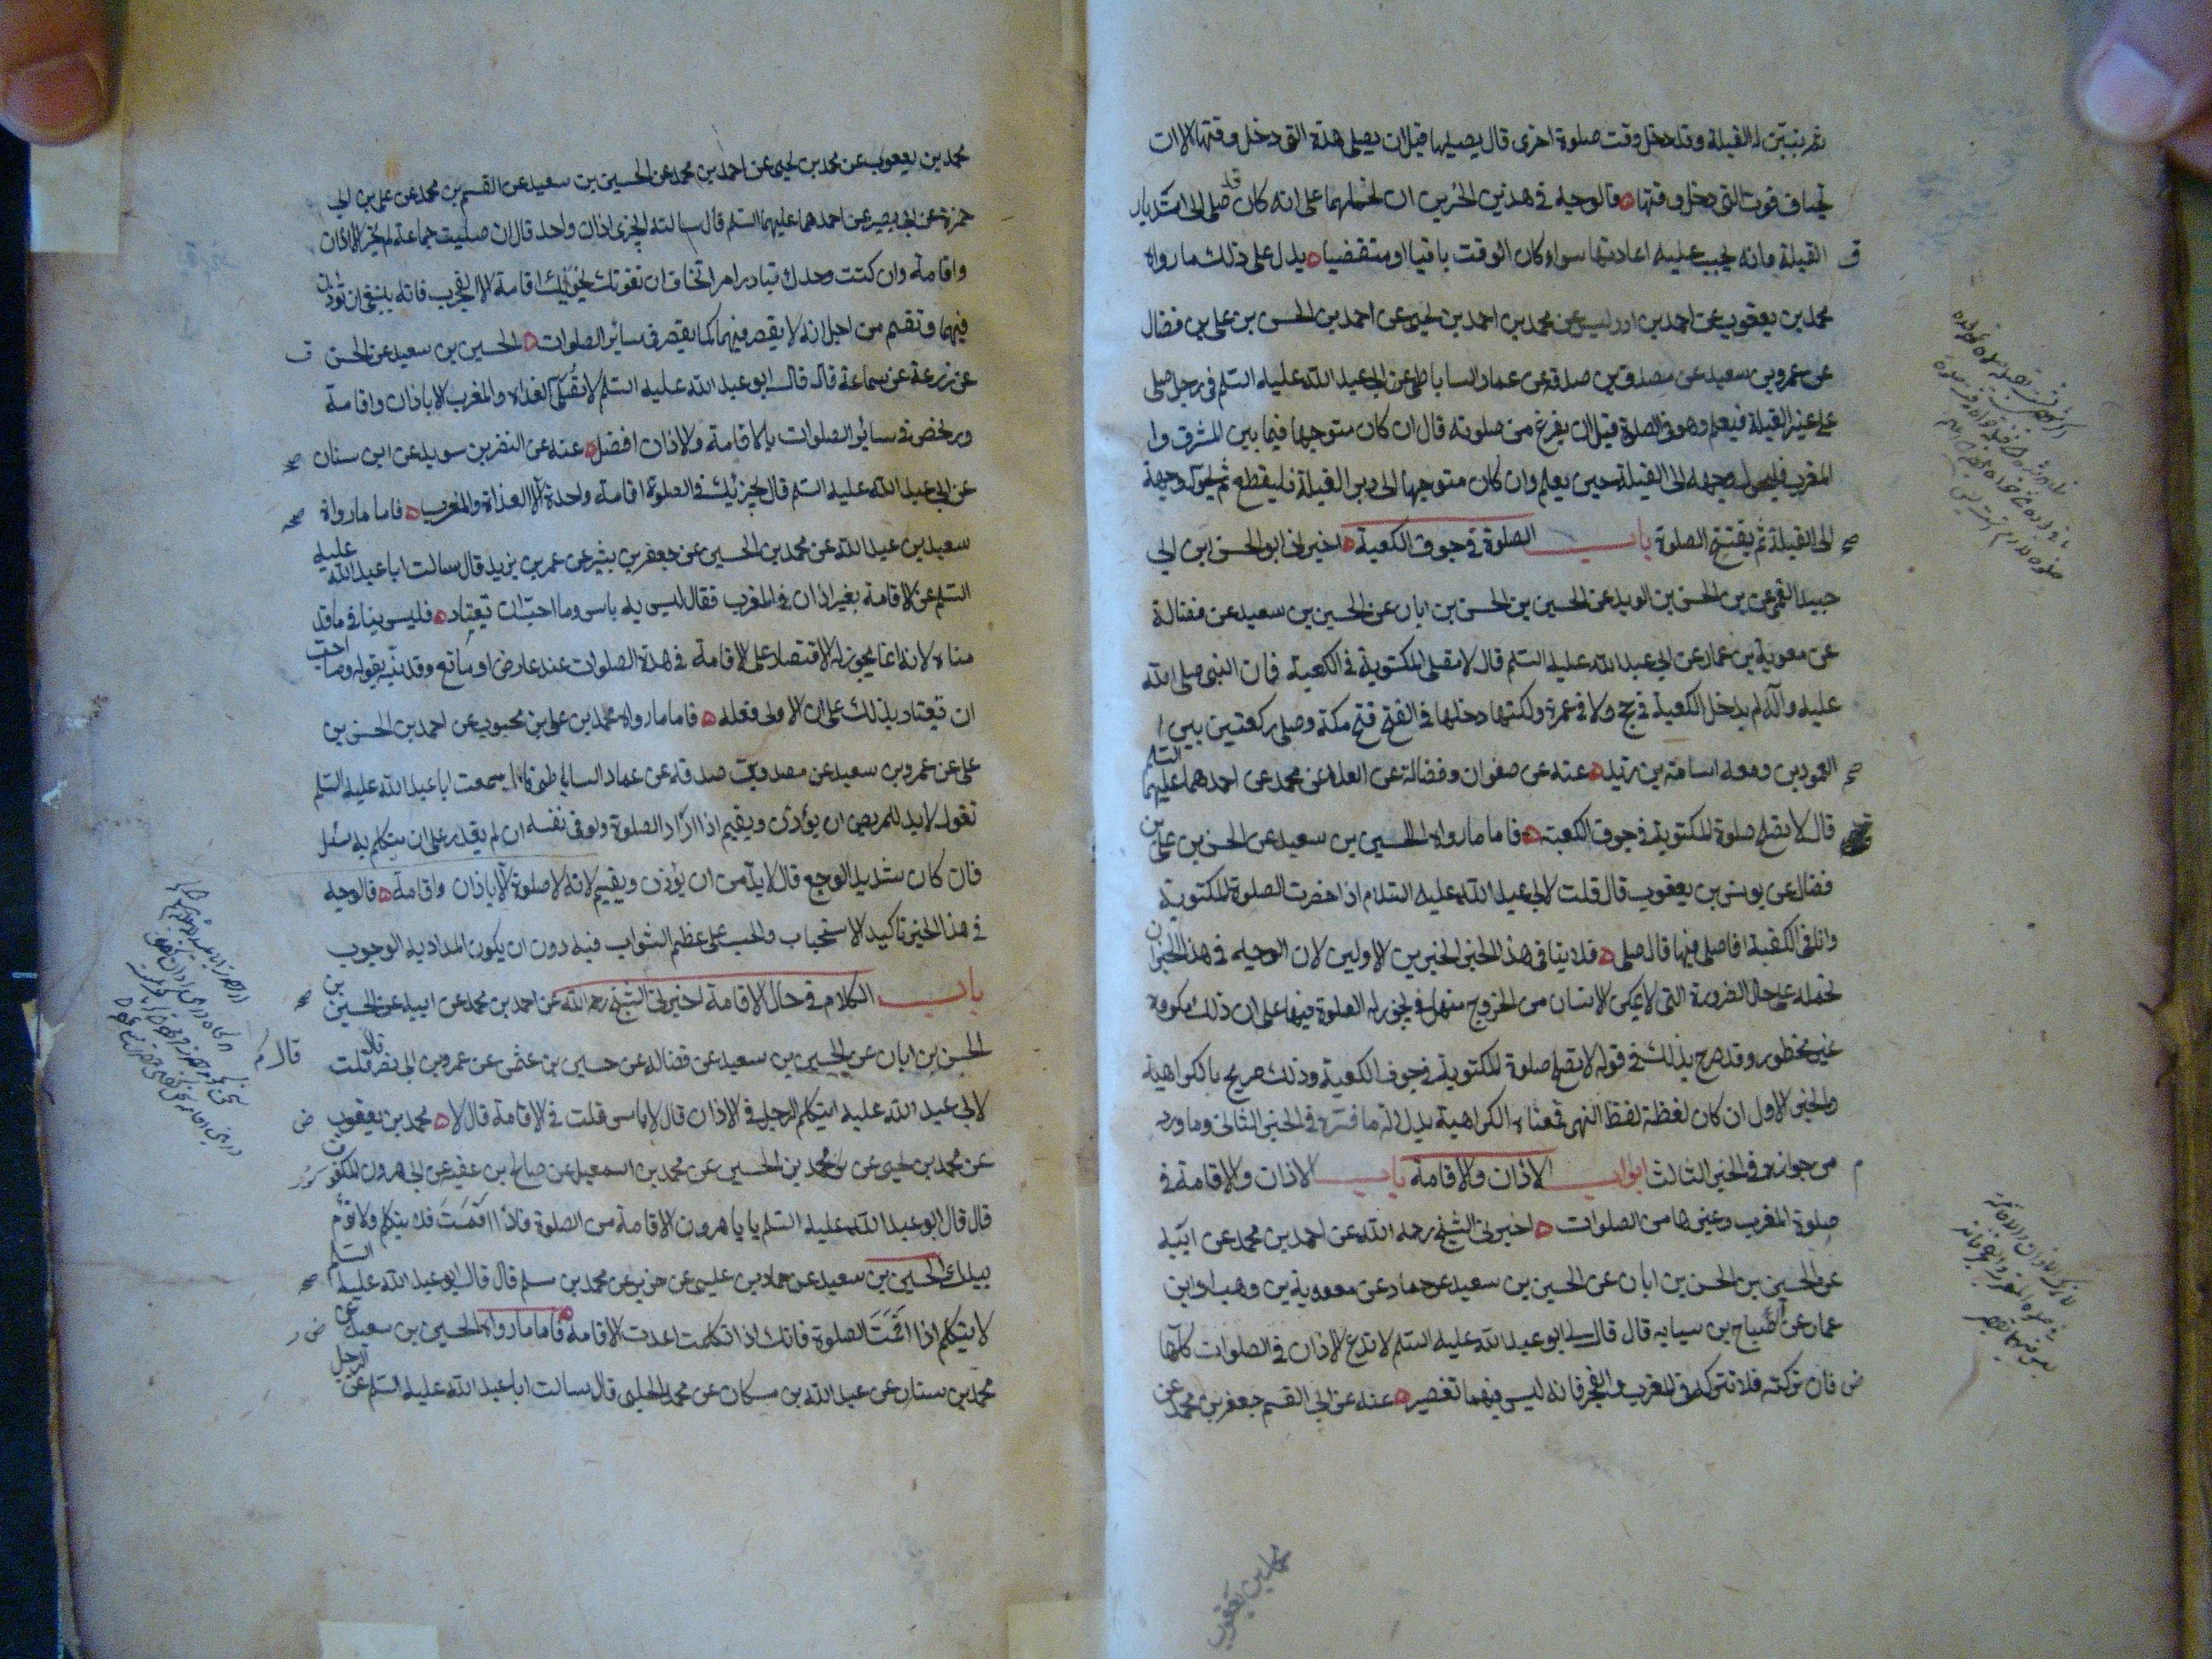 ثم يتبين له القبلة وقد دخل وقت صلوة اخرى قال يصليها قبل ان يصلى هذه التى دخل وقتها الا ان
يخاف فوت التى دخل وقتها ه فالوجه فى هذين الخبرين ان نحملهما على انه كان قد صلى الى استدبار
القبلة فانه يجب عليه اعادتها سوا كان الوقت باقيا او منقضيا ه يدل على ذلك ما رواه
محمد بن يعقوب عن احمد بن ادريس عن محمد بن احمد بن يحيى عن احمد بن الحسن بن على بن فضال
عن عمرو بن سعيد عن مصدق بن صدقه عن عمار الساباطى عن ابى عبد الله عليه السلم فى رجل صلى
على غير القبلة فيعلم وهو فى الصلوة قبل ان يفرغ من صلوته قال ان كان متوجها فيما بين المشرق وا
المغرب فليحول وجهه الى القبلة حين يعلم وان كان متوجها الى دبر القبلة فليقطع ثم يحول وجهه
الى القبلة ثم يفتتح الصلوة باب الصلوة فى جوف الكعبة ه اخبرنى ابو الحسن ابن ابى
جيد القمى عن بن الحسن بن الوليد عن الحسين بن الحسن بن ابان عن الحسين بن سعيد عن فضالة
عن معوية بن عمار عن ابى عبد الله عليه السلم قال لا تصلى المكتوبة فى الكعبة فان النبى صلى الله
عليه وآله لم يدخل الكعبة فى حج ولا فى عمرة ولكنها دخلها فى الفتح فتح مكة وصلى ركعتين بين ا
العمودين ومعه اسامة بن زيد ه عنه عن صفوان وفضالة عن العلا عن محمد عن احدهما عليهما السلم
قال لا تصلح صلوة المكتوبة فى جوف الكعبة ه فاما ما رواه الحسين بن سعيد عن الحسن بن على بن
فضال عن يونس بن يعقوب قال قلت لابى عبد الله عليه السلام اذا حضرت الصلوة المكتوبة
وانا فى الكعبة افاصلى فيها قال صلى ه فلا ينافى هذا الخبر الخبرين الاولين لان الوجه فى هذا الخبر ان
نحمله على حال الضرورة التى لا يمكن الانسان من الخروج منها فيجوز له الصلوة فيها على ان ذلك مكروه
غير محظور وقد صرح بذلك فى قوله لا تصلح صلوة المكتوبة فى جوف الكعبة وذلك صريح بالكراهية
والخبر الاول ان كان لفظة لفظ النهى فمعناه الكراهية بدلالة ما فسره فى الخبر الثانى وما ورد
من جوازه فى الخبر الثالث ابواب الاذان والاقامة باب الاذان والاقامة فى
صلوة المغرب وغيرها من الصلوات ه اخبرنى الشيخ رحمه الله عن احمد بن محمد عن ابيه
عن الحسين بن الحسن بن ابان عن الحسين بن سعيد عن حماد عن معوية بن وهب او ابن
عمار عن الصباح بن سيابه قال قال لى ابو عبد الله عليه السلم لا تدع الاذان فى الصلوات كلها
فان تركته فلا تتركه فى المغرب والفجر فانه ليس فيهما تقصير ه عنه عن ابى القسم جعفر بن محمد عن
محمد بن يعقوب
محمد بن يعقوب عن محمد بن يحيى عن احمد بن محمد عن الحسين بن سعيد عن القسم بن محمد عن على بن ابى
حمزة عن ابى بصير عن احدهما عليهما السلم قال سالته ايجزى اذان واحد قال ان صليت جماعة لم يجز الا اذان
واقامة وان كنت وحدك تبادر امرا تخاف ان تفوتك يجزيك اقامة الا الفجر والمغرب فانه ينبغى ان تؤذن
فيهما وتقيم من اجل انه لا يقصر فيهما كما يقصر فى سائر الصلوات ه الحسين بن سعيد عن الحسن
عن زرعة عن سماعة قال قال ابو عبد الله عليه السلم لا تصلى الغداة والمغرب الا باذان واقامة
ورخص فى سائر الصلوات بالاقامة والاذان افضل ه عنه عن النضر بن سويد عن ابن سنان
عن ابى عبد الله عليه السلم قال يجزيك فى الصلوة اقامة واحدة الا الغداة والمغرب ه فاما ما رواه
سعيد بن عبد الله عن محمد بن الحسين عن جعفر بن بشير عن عمر بن يزيد قال سالت ابا عبد الله عليه
السلم عن الاقامة بغير اذان فى المغرب فقال ليس به باس وما احب ان تعتاد ه فليس ينافى ما قد
مناه لانه انما يجوز له الاقتصار على الاقامة فى هذه الصلوات عند عارض او مانع وقد نبه بقوله وما احب
ان تعتاد بذلك على ان الاولى فعله ه فاما ما رواه محمد بن على بن محبوب عن احمد بن الحسن بن
على عن عمرو بن سعيد عن مصدق بن صدقه عن عمار الساباطى قال سمعت ابا عبد الله عليه السلم
تقول لابد للمريض ان يؤذن ويقيم اذا اراد الصلوة ولو فى نفسه ان لم يقدر على ان يتكلم به سئل
فان كان شديد الوجع قال لابد من ان يؤذن ويقيم لانه لا صلوة الا باذان واقامة ه فالوجه
فى هذا الخبر تاكيد الاستحباب والحث على عظم الثواب فيه دون ان يكون المراد به الوجوب
باب الكلام فى حال الاقامة اخبرنى الشيخ رحمه الله عن احمد بن محمد عن ابيه عن الحسين بن
الحسن بن ابان عن الحسين بن سعيد عن فضاله عن حسين بن عثمن عن عمرو بن ابى نصر قال قلت
لابى عبد الله عليه ايتكلم الرجل فى الاذان قال لا باس قلت فى الاقامة قال لا ه محمد بن يعقوب
عن محمد بن يحيى عن محمد بن الحسين عن محمد بن اسمعيل عن صالح بن عقبه عن ابى هرون المكفوف
قال قال ابو عبد الله عليه السلم يا با هرون الاقامة من الصلوة فاذا اقمت فلا تتكلم ولا تؤم
بيدك الحسين بن سعيد عن حماد بن عيسى عن حريز عن محمد بن مسلم قال قال ابو عبد الله عليه السلم
لا يتكلم اذا اقمت الصلوة فانك اذا تكلمت اعدت الاقامة ه فاما ما رواه الحسين بن سعيد عن
محمد بن سنان عن عبد الله بن مسكان عن محمد الحلبى قال سالت ابا عبد الله عليه السلم عن الرجل